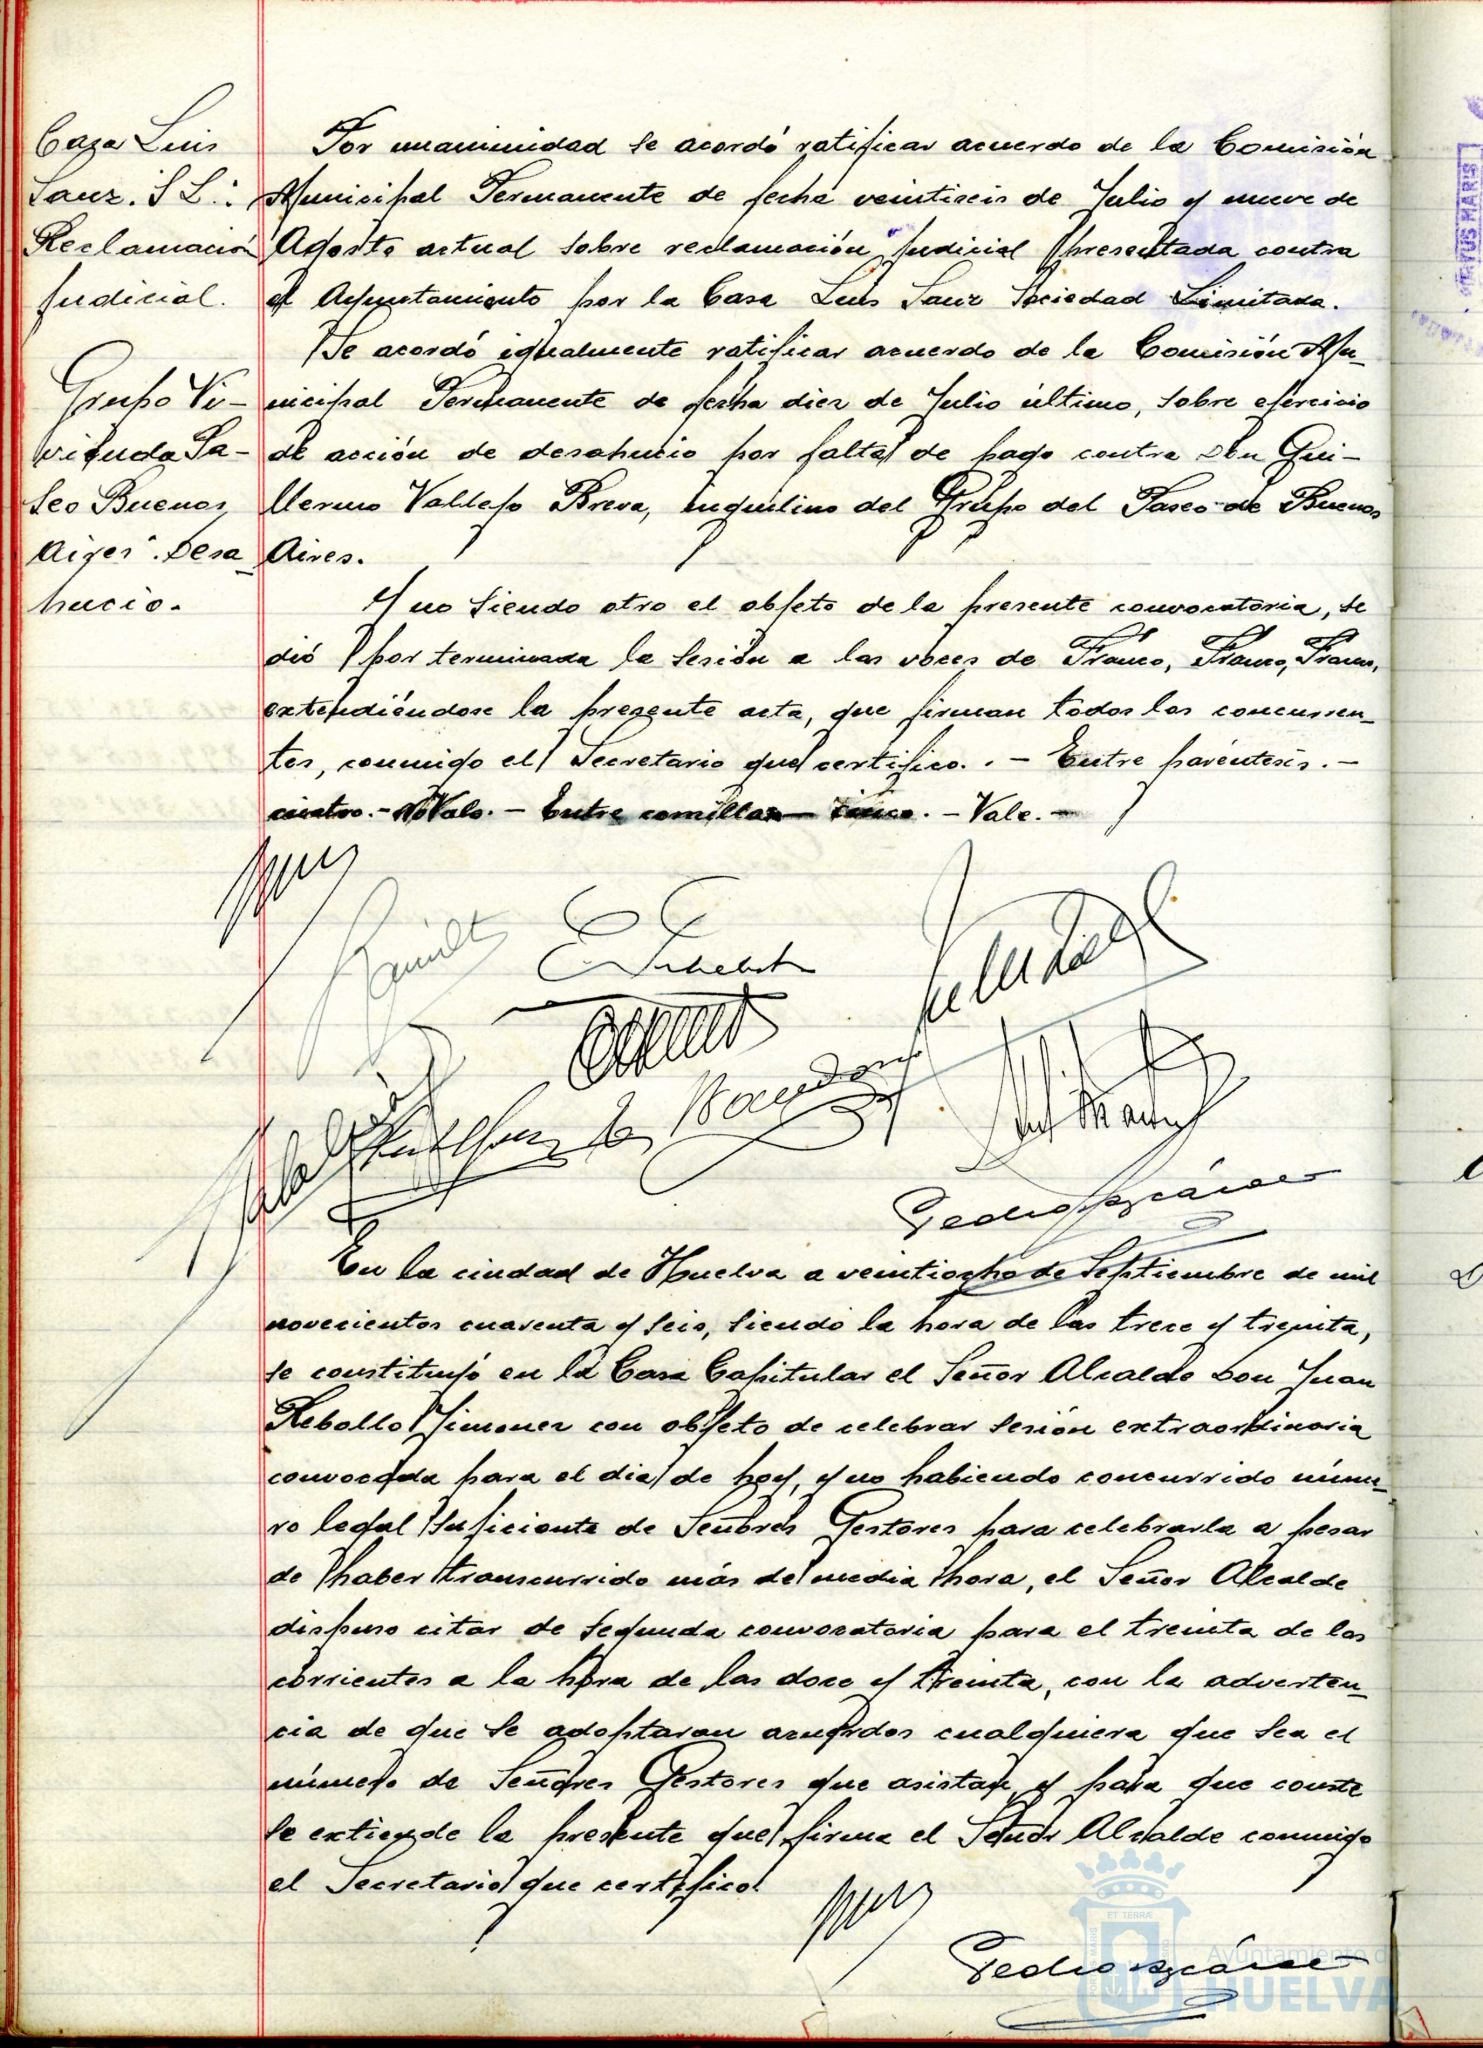 Casa Luis
Sanz. S L.:
Reclamación
judicial.
Por unanimidad se acordó ratificar acuerdo de la Comisión
Municipal Permanente de fecha veintiseis de Julio y nueve de
Agosto actual sobre reclamación judicial presentada contra
el Ayuntamiento por la Casa Luis Sanz Sociedad Limitada.
Grupo Vi-
vienda Pa-
seo Buenos
Aires". Desa-
hucio.
Se acordó igualmente ratificar acuerdo de la Comisión Mu-
nicipal Permanente de fecha diez de Julio último, sobre ejercicio
de acción de desahucio por falta de pago contra Don Gui-
llermo Vallejo Breva, inquilino del Grupo del Paseo de Buenos
Aires.
Y no siendo otro el objeto de la presente convocatoria, se
dió por terminada la sesión a las voces de Franco, Franco, Franco,
extendiéndose la presente acta, que firman todos los concurren-
tes, conmigo el Secretario que certifico. - Entre paréntesis. -
cuatro. - No Vale. - Entre comillas - cinco. - Vale. -
En la ciudad de Huelva a veintiocho de Septiembre de mil
novecientos cuarenta y seis, siendo la hora de las trece y treinta,
se constituyó en la Casa Capitular el Señor Alcalde Don Juan
Rebollo Jimenez con objeto de celebrar sesión extraordinaria
convocada para el dia de hoy, y no habiendo concurrido núme-
ro legal suficiente de Señores Gestores para celebrarla a pesar
de haber transcurrido más de media hora, el Señor Alcalde
dispuso citar de segunda convocatoria para el treinta de los
corrientes a la hora de las doce y treinta, con la adverten-
cia de que se adoptaran acuerdos cualquiera que sea el
número de Señores Gestores que asistan, y para que conste
se extiende la presente que firma el Señor Alcalde conmigo
el Secretario que certifico.
Ayuntamiento de
HUELVA